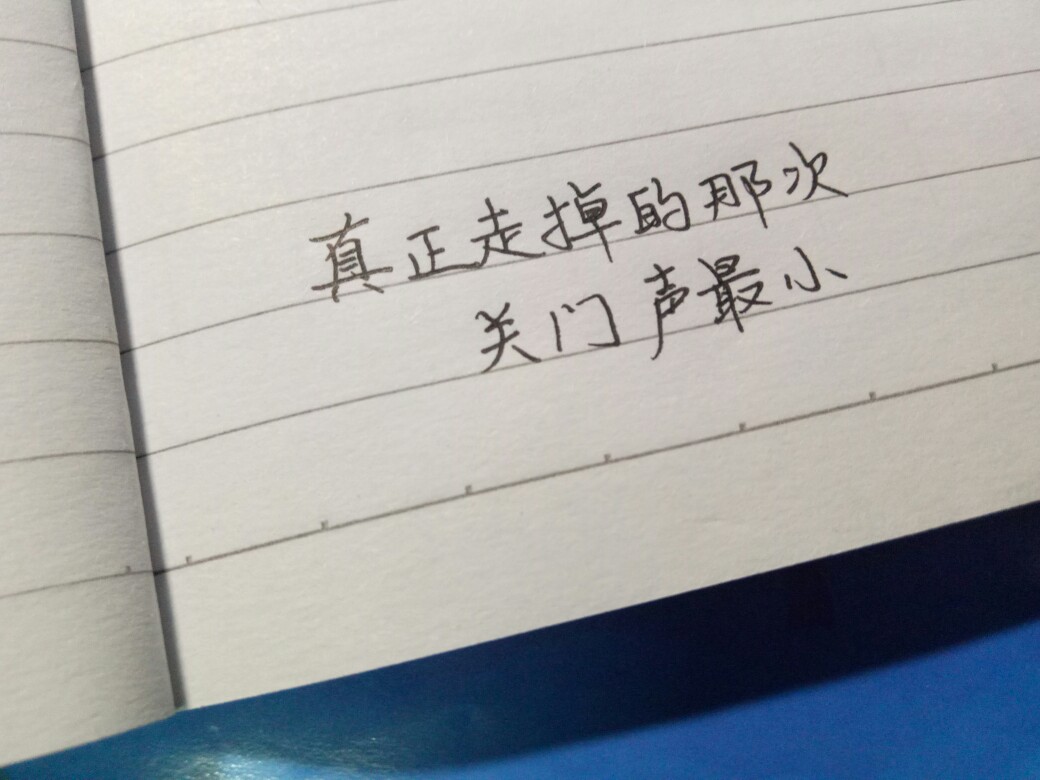 真正走掉的那次
关门声最小